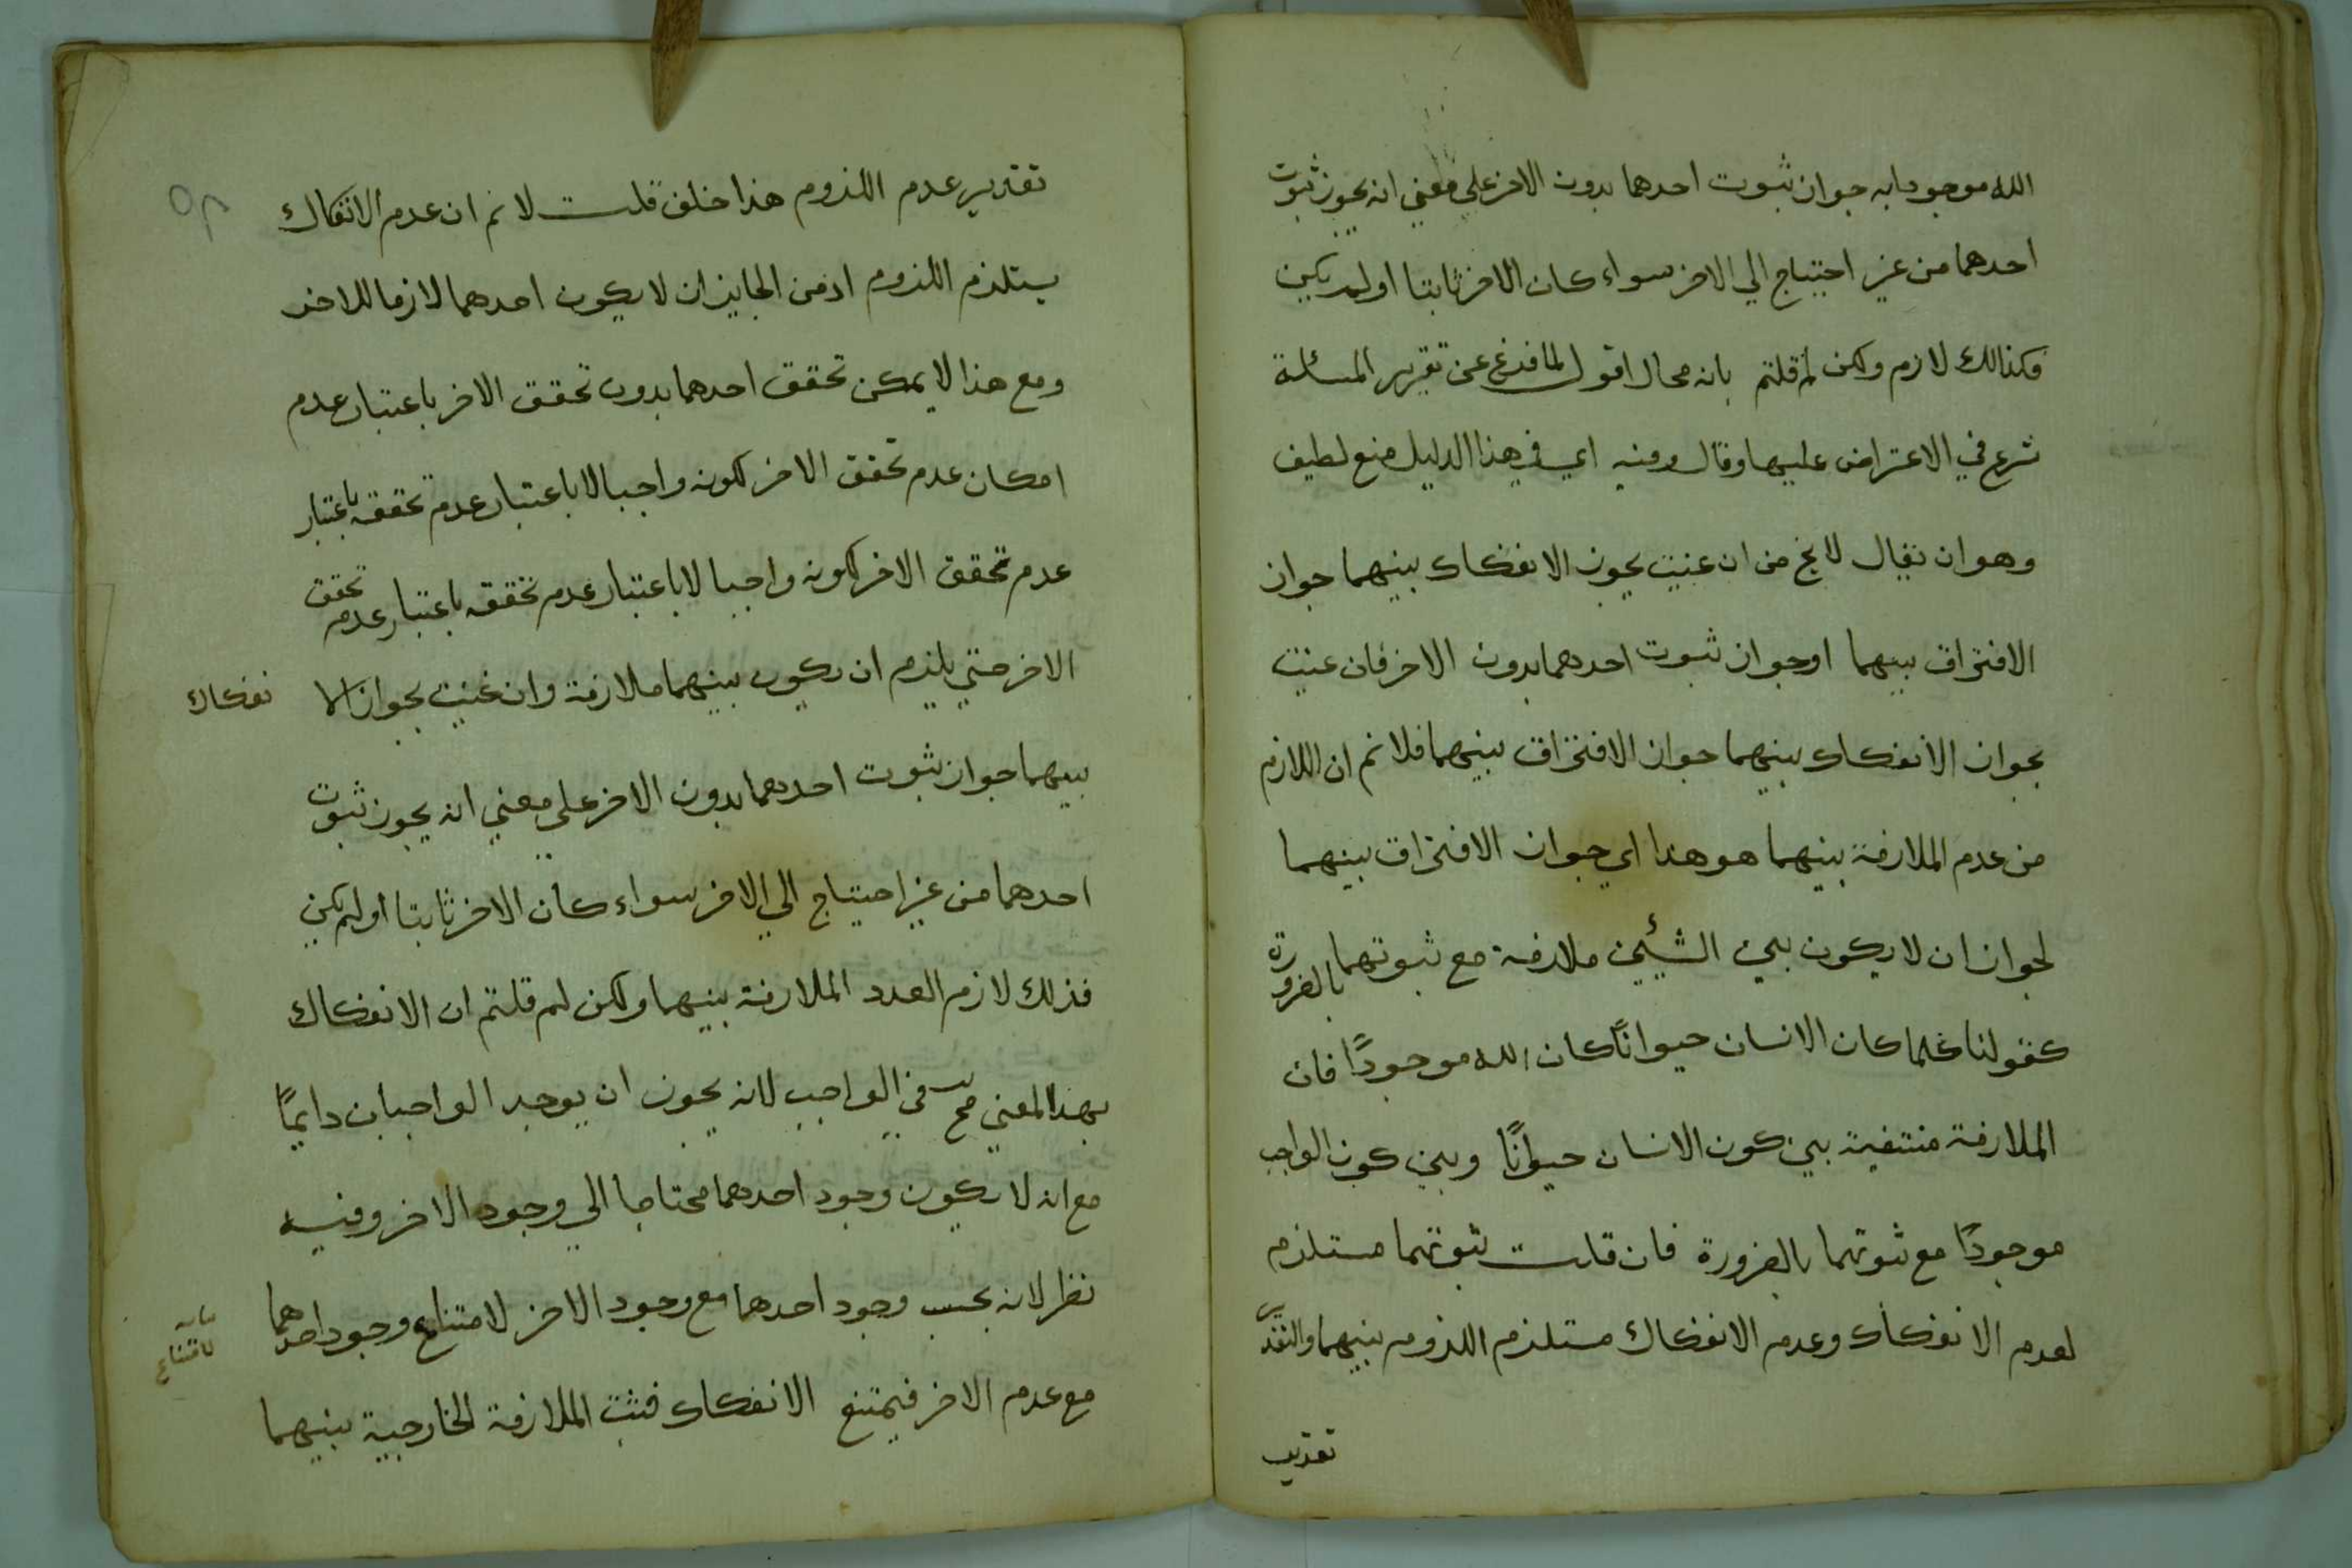 الله موجودا به جواز ثبوت احدهما بدون الاخر علي معني انه يجوز ثبوت
احدهما من غير احتياج الي الاخر سواء كان الاخر ثابتا او لم يكن
فكذالك لازم ولكن لم قلتم بانه محال اقول لما فرغ عن تقرير المسئلة
شرع في الاعتراض عليها وقال وفيه اي في هذا الدليل منع لطيف
وهو ان يقال لا يخ من ان عنيت بجوز الانفكاك بينهما جواز
الافتراق بينهما او جواز ثبوت احدهما بدون الاخر فان عنيت
بجواز الانفكاك بينهما جواز الافتراق بينهما فلا نم ان اللازم
من عدم الملازمة بينهما هو هذا اي جواز الافتراق بينهما
لجواز ان لا يكون بين الشيئين ملازمة مع ثبوتهما بالضرورة
كقولنا كلما كان الانسان حيوانًا كان الله موجودًا فان
الملازمة منتفية بين كون الانسان حيوانًا وبين كون الواجب
موجودًا مع ثبوتهما بالضرورة فان قلت ثبوتهما مستلزم
لعدم الانفكاك وعدم الانفكاك مستلزم اللزوم بينهما والتقدير
تقدير
تقدير عدم اللزوم هذا خلف قلت لا نم ان عدم الانفكاك
يستلزم اللزوم اذ من الجايز ان لا يكون احدهما لازما للاخر
ومع هذا لا يمكن تحقق احدهما بدون تحقق الاخر باعتبار عدم
امكان عدم تحقق الاخر لكونه واجبا لا باعتبار عدم تحققه باعتبار
عدم تحقق الاخر لكونه واجبا لا باعتبار عدم تحققه باعتبار عدم تحقق
الاخر حتي يلزم ان يكون بينهما ملازمة وان عنيت بجواز الا نفكاك
بينهما جواز ثبوت احدهما بدون الاخر علي معني انه يجوز ثبوت
احدهما من غير احتياج الي الاخر سواء كان الاخر ثابتا او لم يكن
فذلك لازم لعدد الملازمة بينهما ولكن لم قلتم ان الانفكاك
بهذا المعني مح في الواجب لانه يجوز ان يوجد الواجبان دايمًا
مع انه لا يكون وجود احدهما محتاجا الي وجود الاخر وفيه
نظر لانه بحسب وجود احدهما مع وجود الاخر لامتناع وجود احدهما
لامتناع
مع عدم الاخر فيمتنع الانفكاك فثبت الملازمة الخارجية بينهما